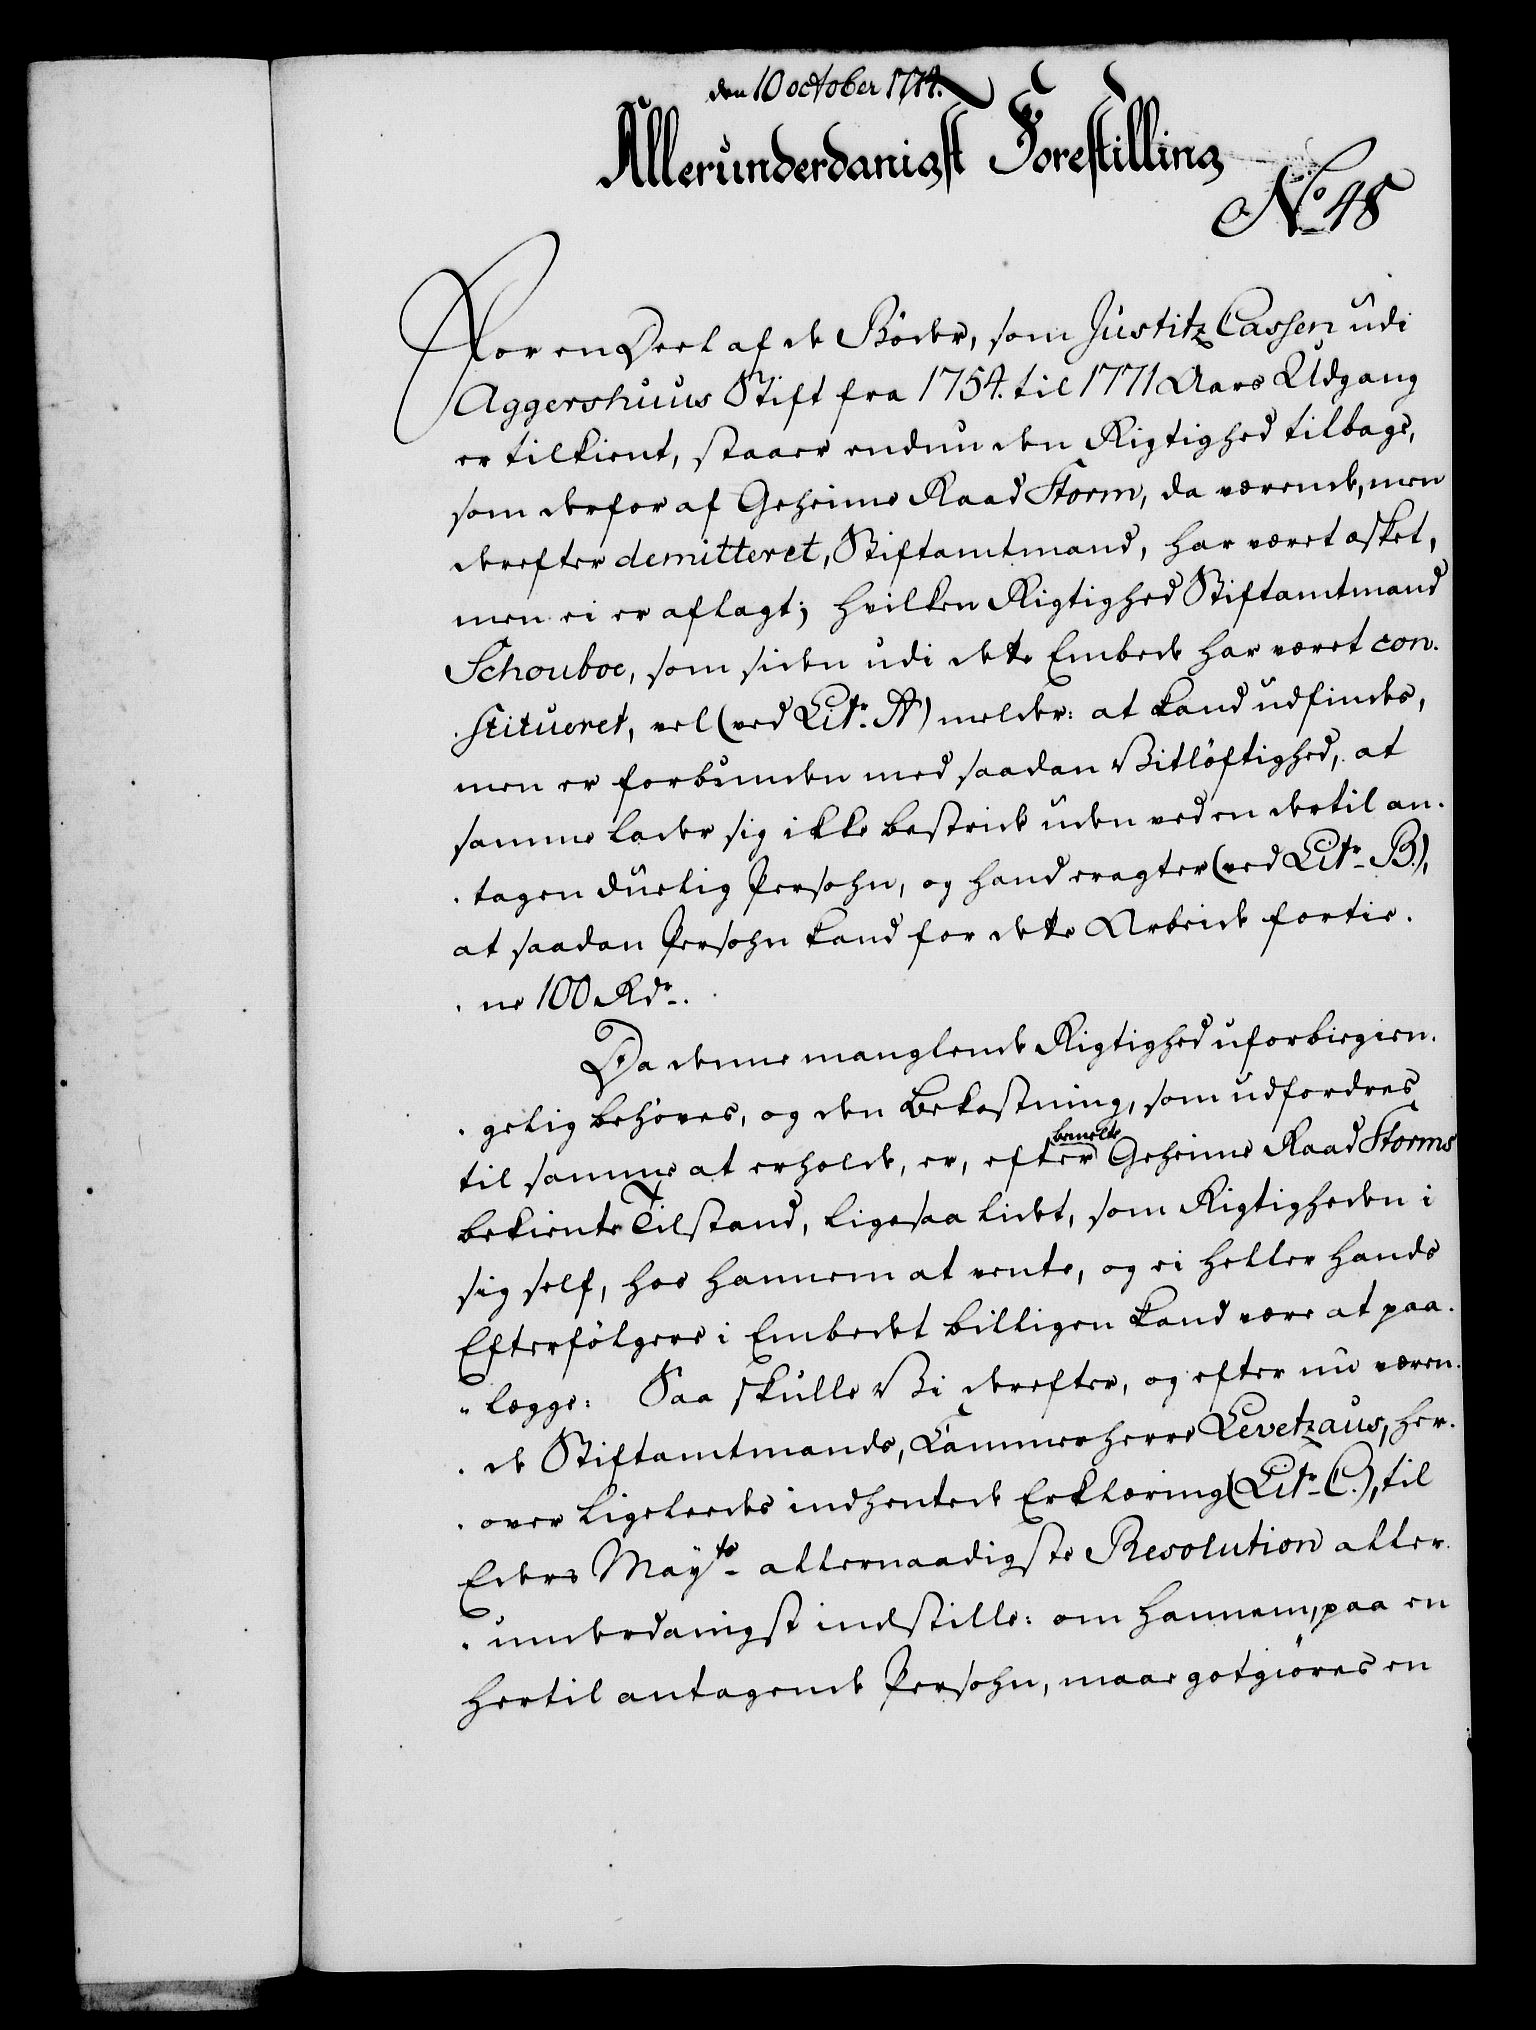 den 10 october 1774.
Allerunderdanigst Forestilling
No. 48
For en Deel af de Böder, som Justitz Cassen udi
Aggershuus Stift fra 1754. til 1771 Aars Udgang
er tilkient, staaer endnu den Rigtighed tilbage,
som derfor af Geheime Raad Storm, da værende, men
derefter demitteret, Stiftamtmand, har været æsket,
men ei er aflagt; hvilken Rigtighed Stiftamtmand
Schouboe, som siden udi dette Embede har været con-
stitueret, vel (ved Litr. A) melder: at kand udfindes,
men er forbunden med saadan Vitlöftighed, at
samme lader sig ikke bestride uden ved en dertil an-
tagen duelig Persohn, og hand eragter (ved Litr. B.),
at saadan Persohn kand for dette Arbeide fortie-
ne 100 Rdr.
Da denne manglende Rigtighed uforbiegien-
gelig behöves, og den Bekostning, som udfordres
til samme at erholde, er, efter bemelte Geheime Raad Storms
bekiente Tilstand, ligesaa lidet, som Rigtigheden i
sig self, hos hannem at vente, og ei heller hands
Efterfölgere i Embedet billigen kand være at paa-
lægge: Saa skulle Vi derefter, og efter nu væren-
de Stiftamtmands, Cammerherre Levetzaus, her-
over ligeleedes indhentede Erklæring (Litr. C.), til
Eders Mayts. allernaadigste Resolution aller-
underdanigst indstille: om hannem, paa en
hertil antagende Persohn, maae gotgiöres en